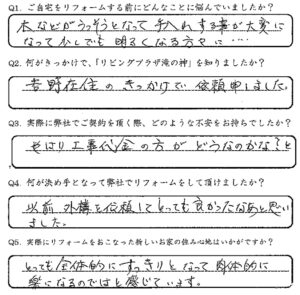 Q1. ご自宅をリフォームする前にどんなことに悩んでいましたか？
木などがうっそうとなって手入れする事が大変に
なって少しでも明るくなる方々に…
Q2. 何がきっかけで、「リビングプラザ滝の神」を知りましたか？
吉野在住のきっかけで依頼申しました。
Q3. 実際に弊社でご契約を頂く際、どのような不安をお持ちでしたか？
やはり工事代金の方がどうなのかな？と
Q4. 何が決め手となって弊社でリフォームをして頂けましたか？
以前外構を依頼してとっても良かったなあと思い
ました。
Q5. 実際にリフォームをおこなった新しいお家の住み心地はいかがですか？
とっても全体的にすっきりとなって肉体的に
楽になるのではと感じています。